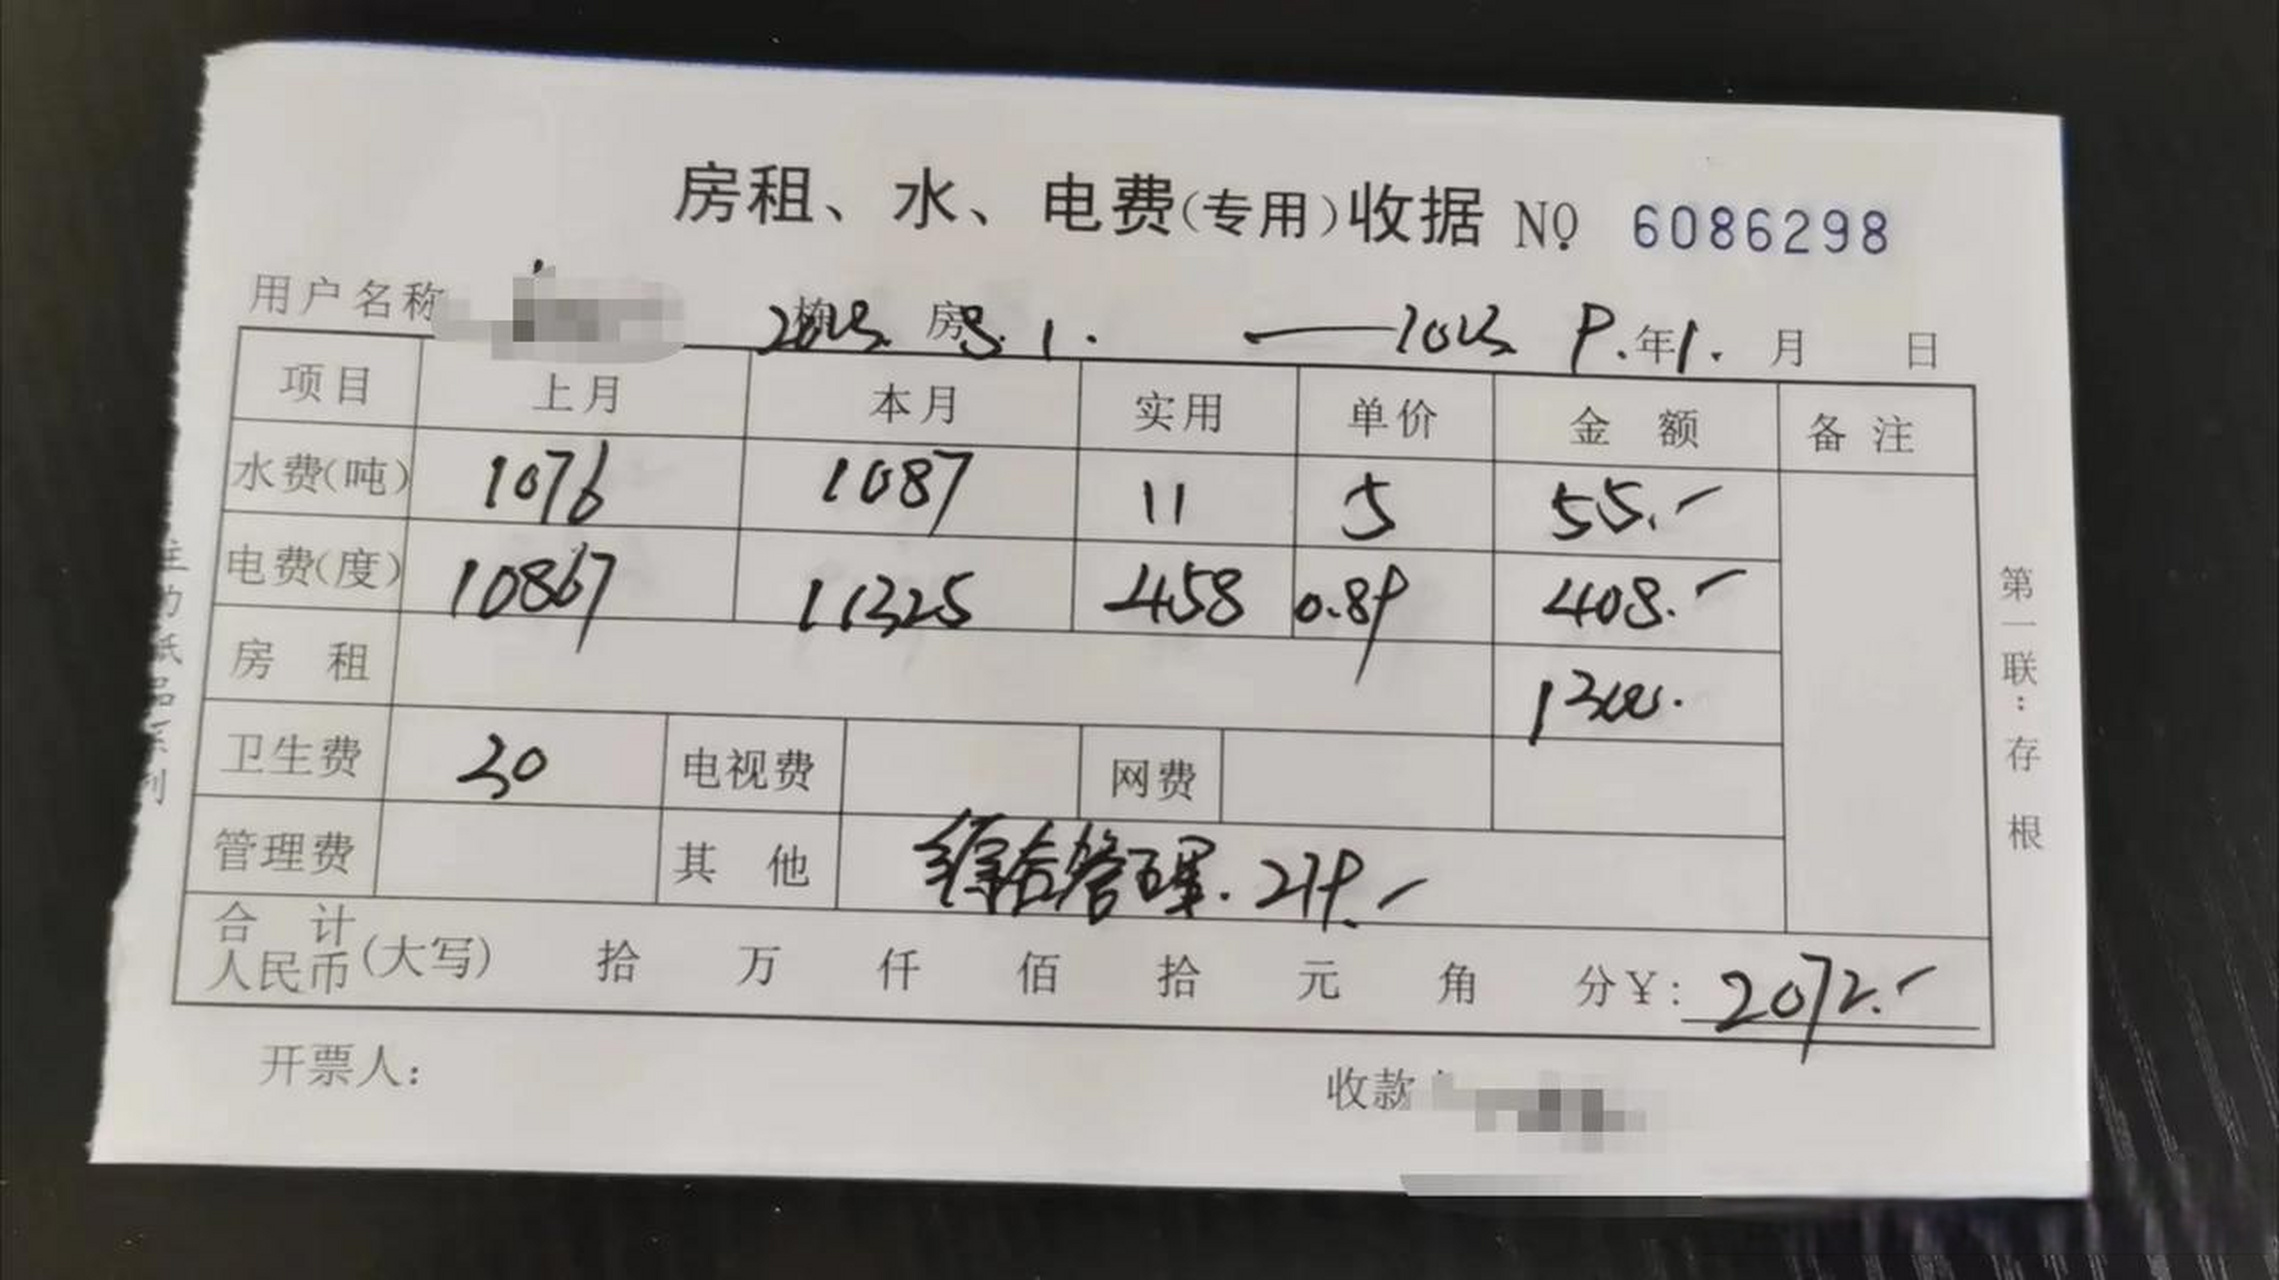 房租、水、电费(专用)收据 NO 6086298
用户名称 栋 房 8.1. —— 9.年1.月 日
项目 上月 本月 实用 单价 金额 备注
水费(吨) 1076 1087 11 5 55.-
电费(度) 10867 11325 458 0.89 408.-
房租 1300.
卫生费 30 电视费 网费
管理费 其他 综合管理. 279.-
合计人民币(大写) 拾 万 仟 佰 拾 元 角 分¥: 2072.-
开票人: 收款
第一联:存根